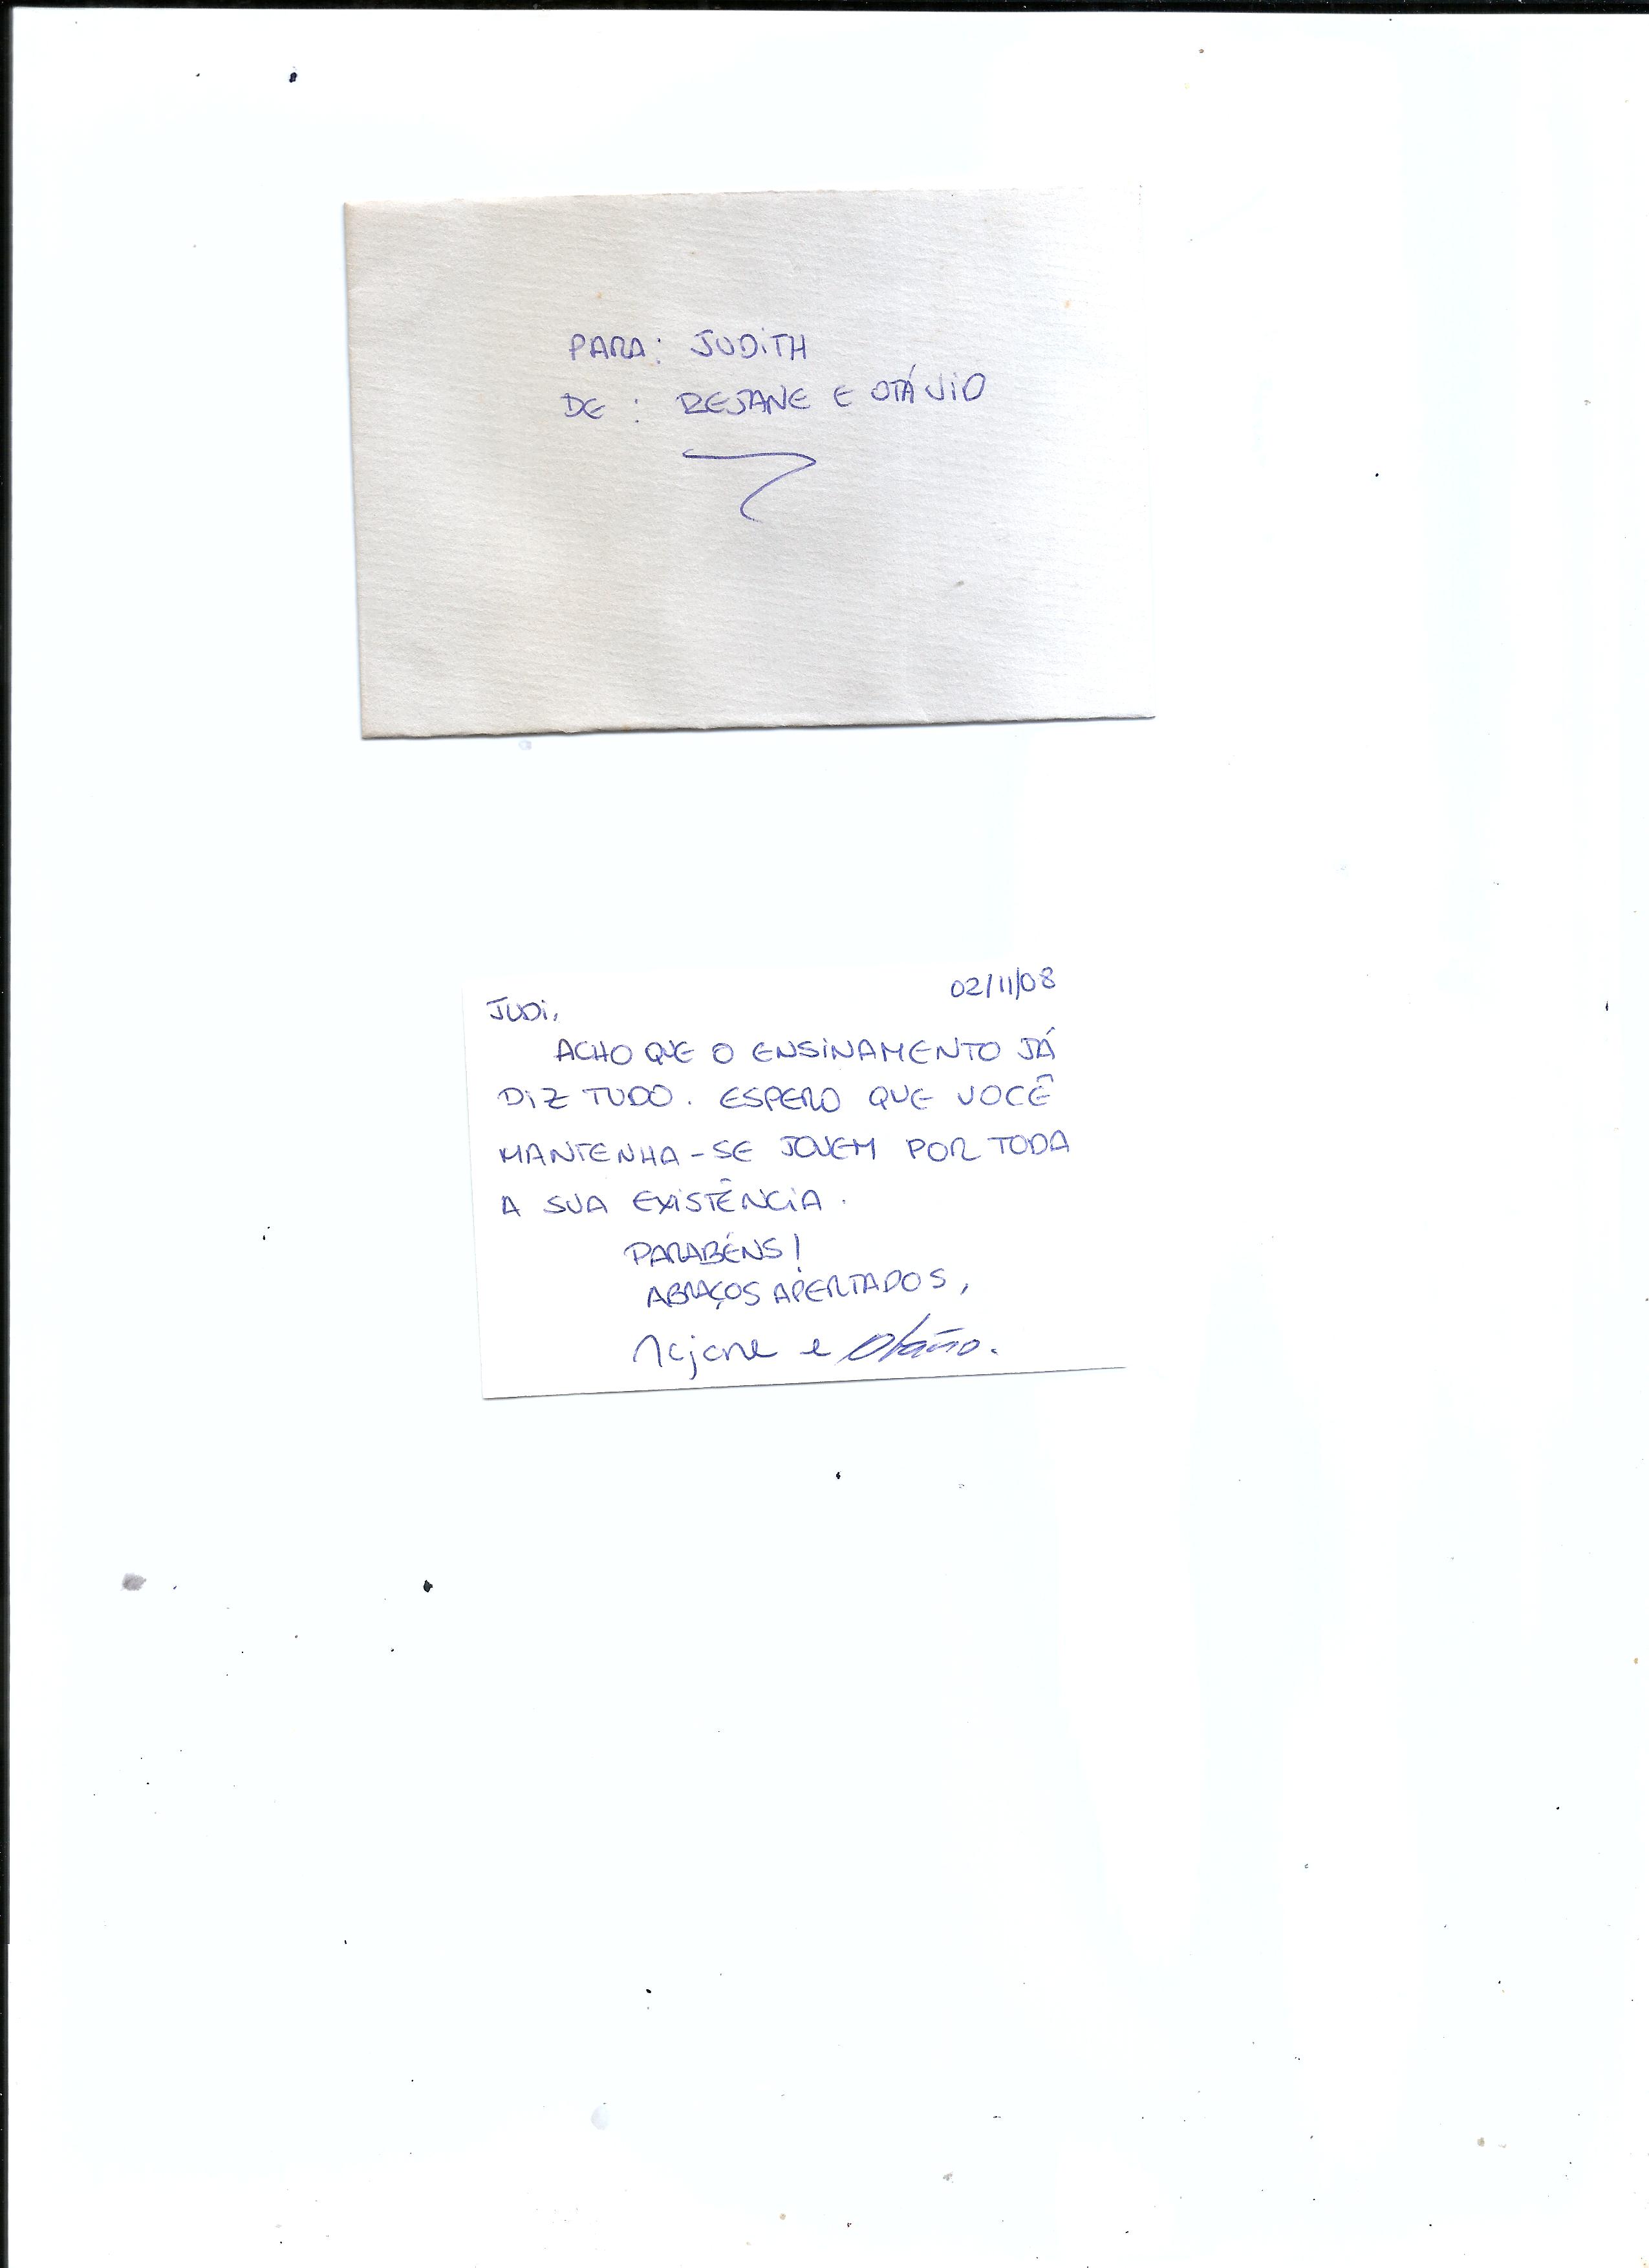 PARA: JUDiTH
DE: REJANE E OTÁViO
02/11/08
JUDi,
ACHO QUE O ENSiNAMENTO JÁ
DiZ TUDO. ESPERO QUE VOCÊ
MANTENHA-SE JOVEM POR TODA
A SUA EXiSTÊNCiA.
PARABÉNS!
ABRAÇOS APERTADOS,
Rejane e Otávio.